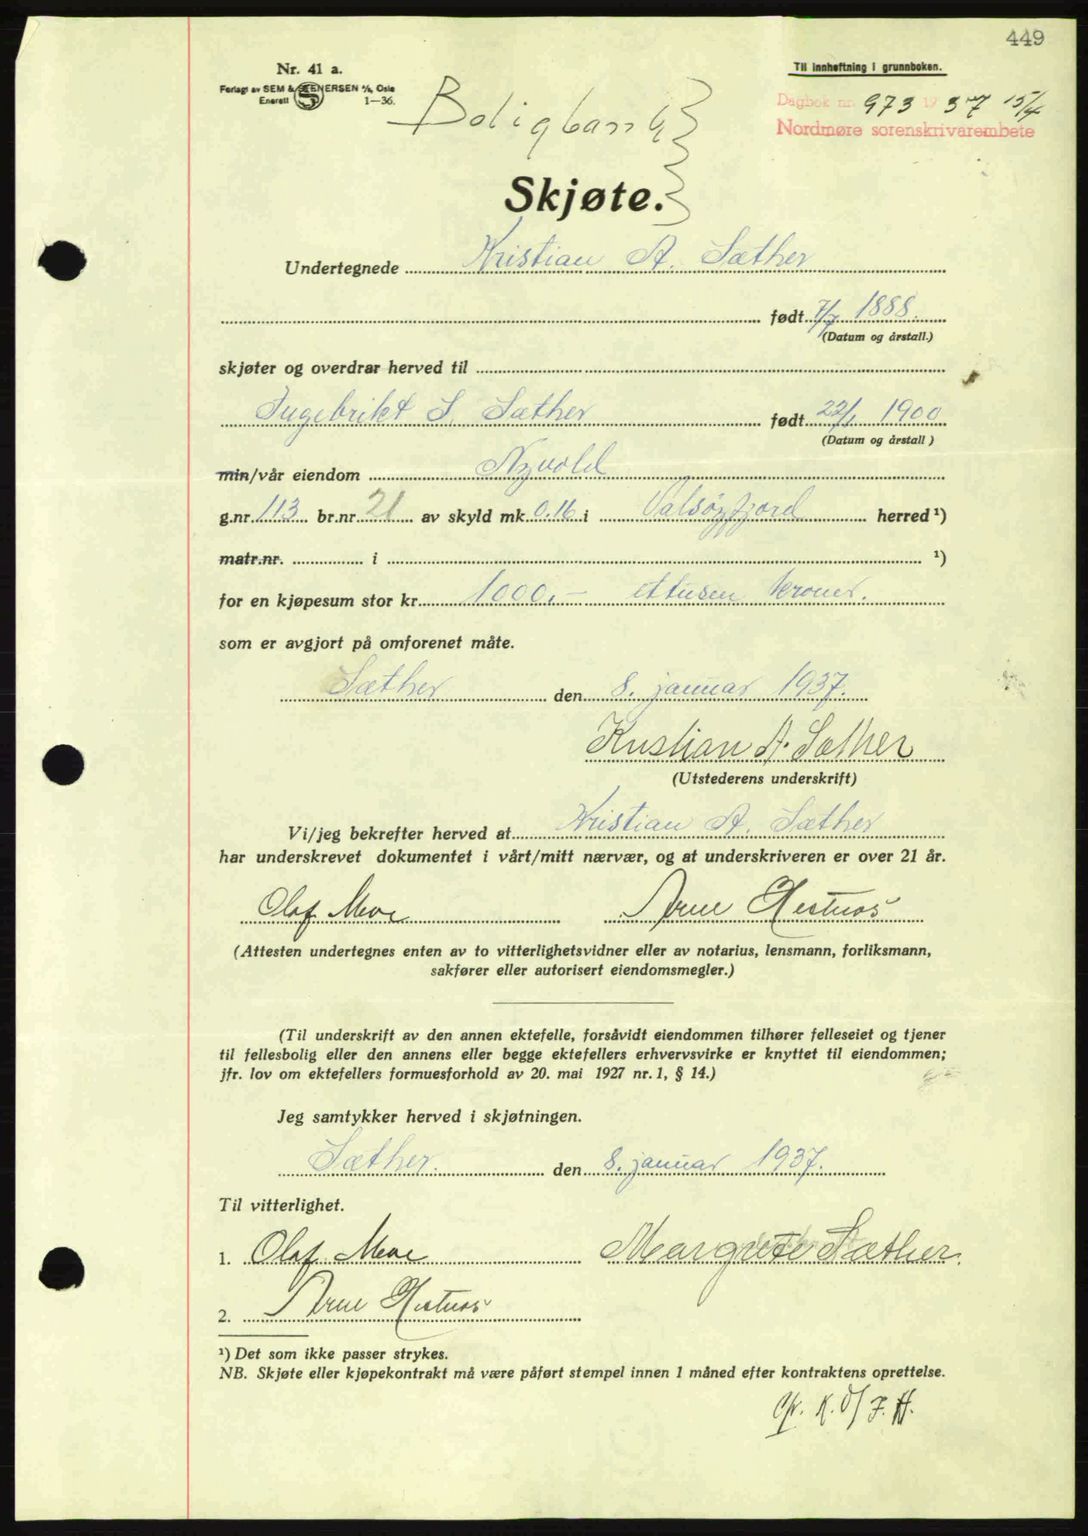 449
Nr. 41 a.
Forlagt av SEM & STENERSEN A/S, Oslo
Enerett 1—36.
Til innheftning i grunnboken.
Dagbok nr. 973 1937 15/4
Nordmøre sorenskrivarembete
Boligbank
Skjøte.
Undertegnede Kristian A. Sæther
født 7/7 1888.
(Datum og årstall.)
skjøter og overdrar herved til
Ingebrikt S. Sæther født 22/1 1900
(Datum og årstall )
min/vår eiendom Nyvold
g.nr. 113 br.nr. 21 av skyld mk. 0.16 i Valsøyfjord herred ¹)
matr.nr. i ¹)
for en kjøpesum stor kr. 1000,- ettusen kroner.
som er avgjort på omforenet måte.
Sæther den 8. januar 1937.
Kristian A. Sæther
(Utstederens underskrift)
Vi/jeg bekrefter herved at Kristian A. Sæther
har underskrevet dokumentet i vårt/mitt nærvær, og at underskriveren er over 21 år.
Olaf Moe Arne Hestnes
(Attesten undertegnes enten av to vitterlighetsvidner eller av notarius, lensmann, forliksmann,
sakfører eller autorisert eiendomsmegler.)
(Til underskrift av den annen ektefelle, forsåvidt eiendommen tilhører felleseiet og tjener
til fellesbolig eller den annens eller begge ektefellers erhvervsvirke er knyttet til eiendommen;
jfr. lov om ektefellers formuesforhold av 20. mai 1927 nr. 1, § 14.)
Jeg samtykker herved i skjøtningen.
Sæther. den 8. januar 1937.
Til vitterlighet.
1. Olaf Moe Margrete Sæther.
2. Arne Hestnes
¹) Det som ikke passer strykes.
NB. Skjøte eller kjøpekontrakt må være påført stempel innen 1 måned efter kontraktens oprettelse.
K. O/ J. H.